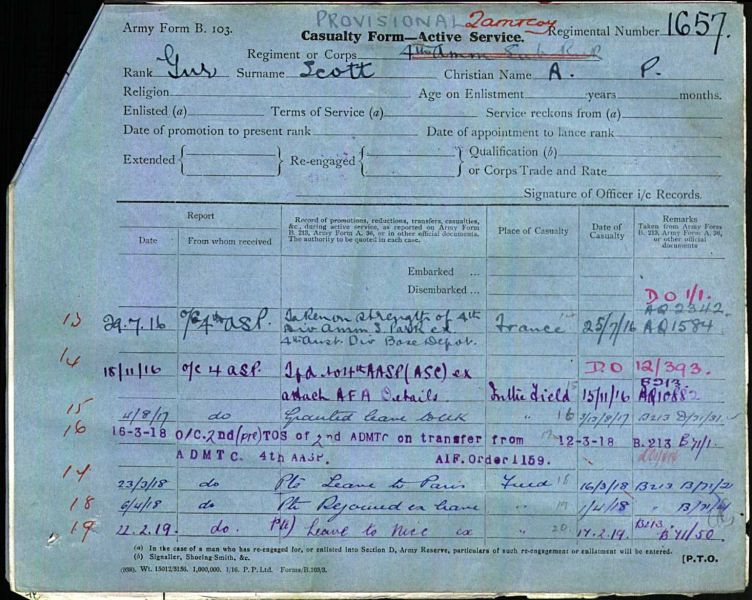 PROVISIONAL
Army Form B. 103.
Casualty Form—Active Service.
Regimental Number 1657.
Regiment or Corps 4th Amm Sub Park
Rank Gnr Surname Scott Christian Name A. P.
Religion Age on Enlistment years months.
Enlisted (a) Terms of Service (a) Service reckons from (a)
Date of promotion to present rank Date of appointment to lance rank
Extended Re-engaged Qualification (b)
or Corps Trade and Rate
Signature of Officer i/c Records.
Report
Date From whom received
Record of promotions, reductions, transfers, casualties, &c., during active service, as reported on Army Form B. 213, Army Form A. 36, or in other official documents. The authority to be quoted in each case.
Place of Casualty
Date of Casualty
Remarks
Taken from Army Form B. 213, Army Form A. 36, or other official documents
Embarked ...
Disembarked ...
DO 1/1.
AQ 2342
13 29.7.16 O/C 4th ASP. Taken on strength of 4th France 25/7/16 AQ1584
Div Amm S. Park ex
4th Aust Div Base Depot.
14 DO 12/393.
18/11/16 O/C 4 ASP. Tfd to 4th AASP (ASC) ex B213
attach AFA Details In the Field 15 15/11/16 AQ10882
15 4/8/17 do Granted leave to UK " 16 B213
16 16-3-18 O/C. 2nd TOS of 2nd ADMTC on transfer from 12-3-18 B.213 B71/1.
ADMTC. 4th AASP. AIF. Order 1159.
17 23/3/18 do Pte Leave to Paris Field 18 16/3/18 B213 B/71/21
18 6/4/18 do Pte Rejoined ex leave " 19 1/4/18 "
19 22.2.19. do. Leave to Nice ex " 20. 17.2.19. B213. B71/50
(a) In the case of a man who has re-engaged for, or enlisted into Section D, Army Reserve, particulars of such re-engagement or enlistment will be entered.
(b) Signaller, Shoeing-Smith, &c.
[P.T.O.
(938). Wt. 15012/3156. 1,000,000. 1/16. P.P.Ltd. Forms/B.103/3.